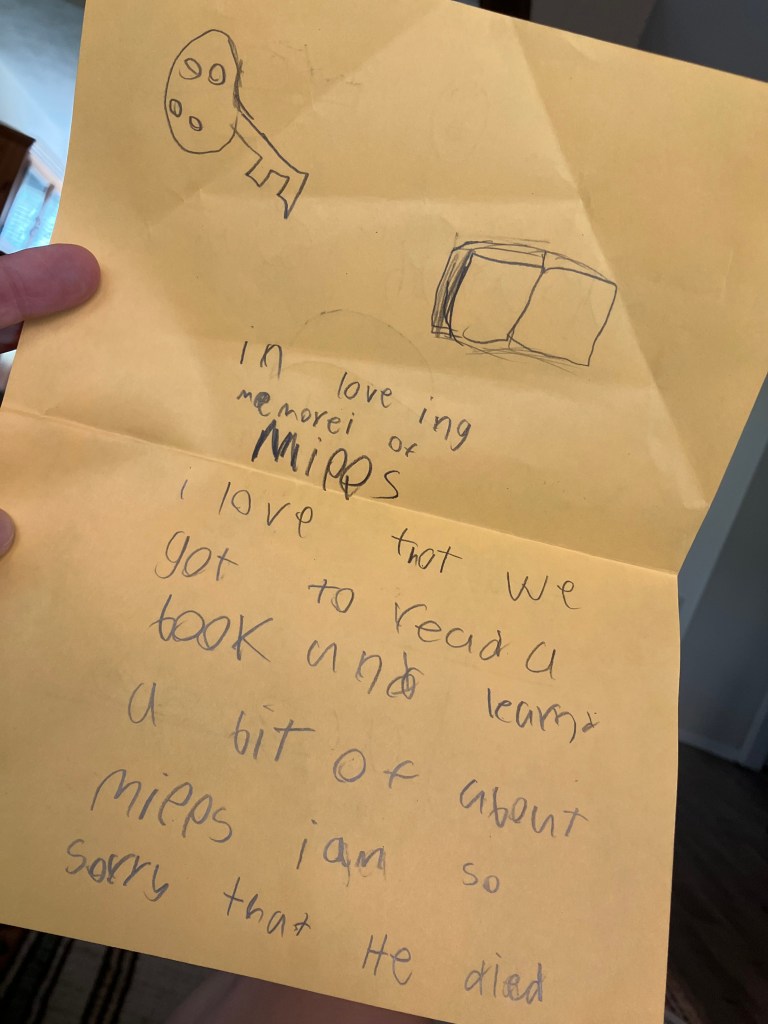 in loveing
memorei of
Mipps
i love that we
got to read a
book and learnd
a bit of about
mipps i am so
sorry that He died